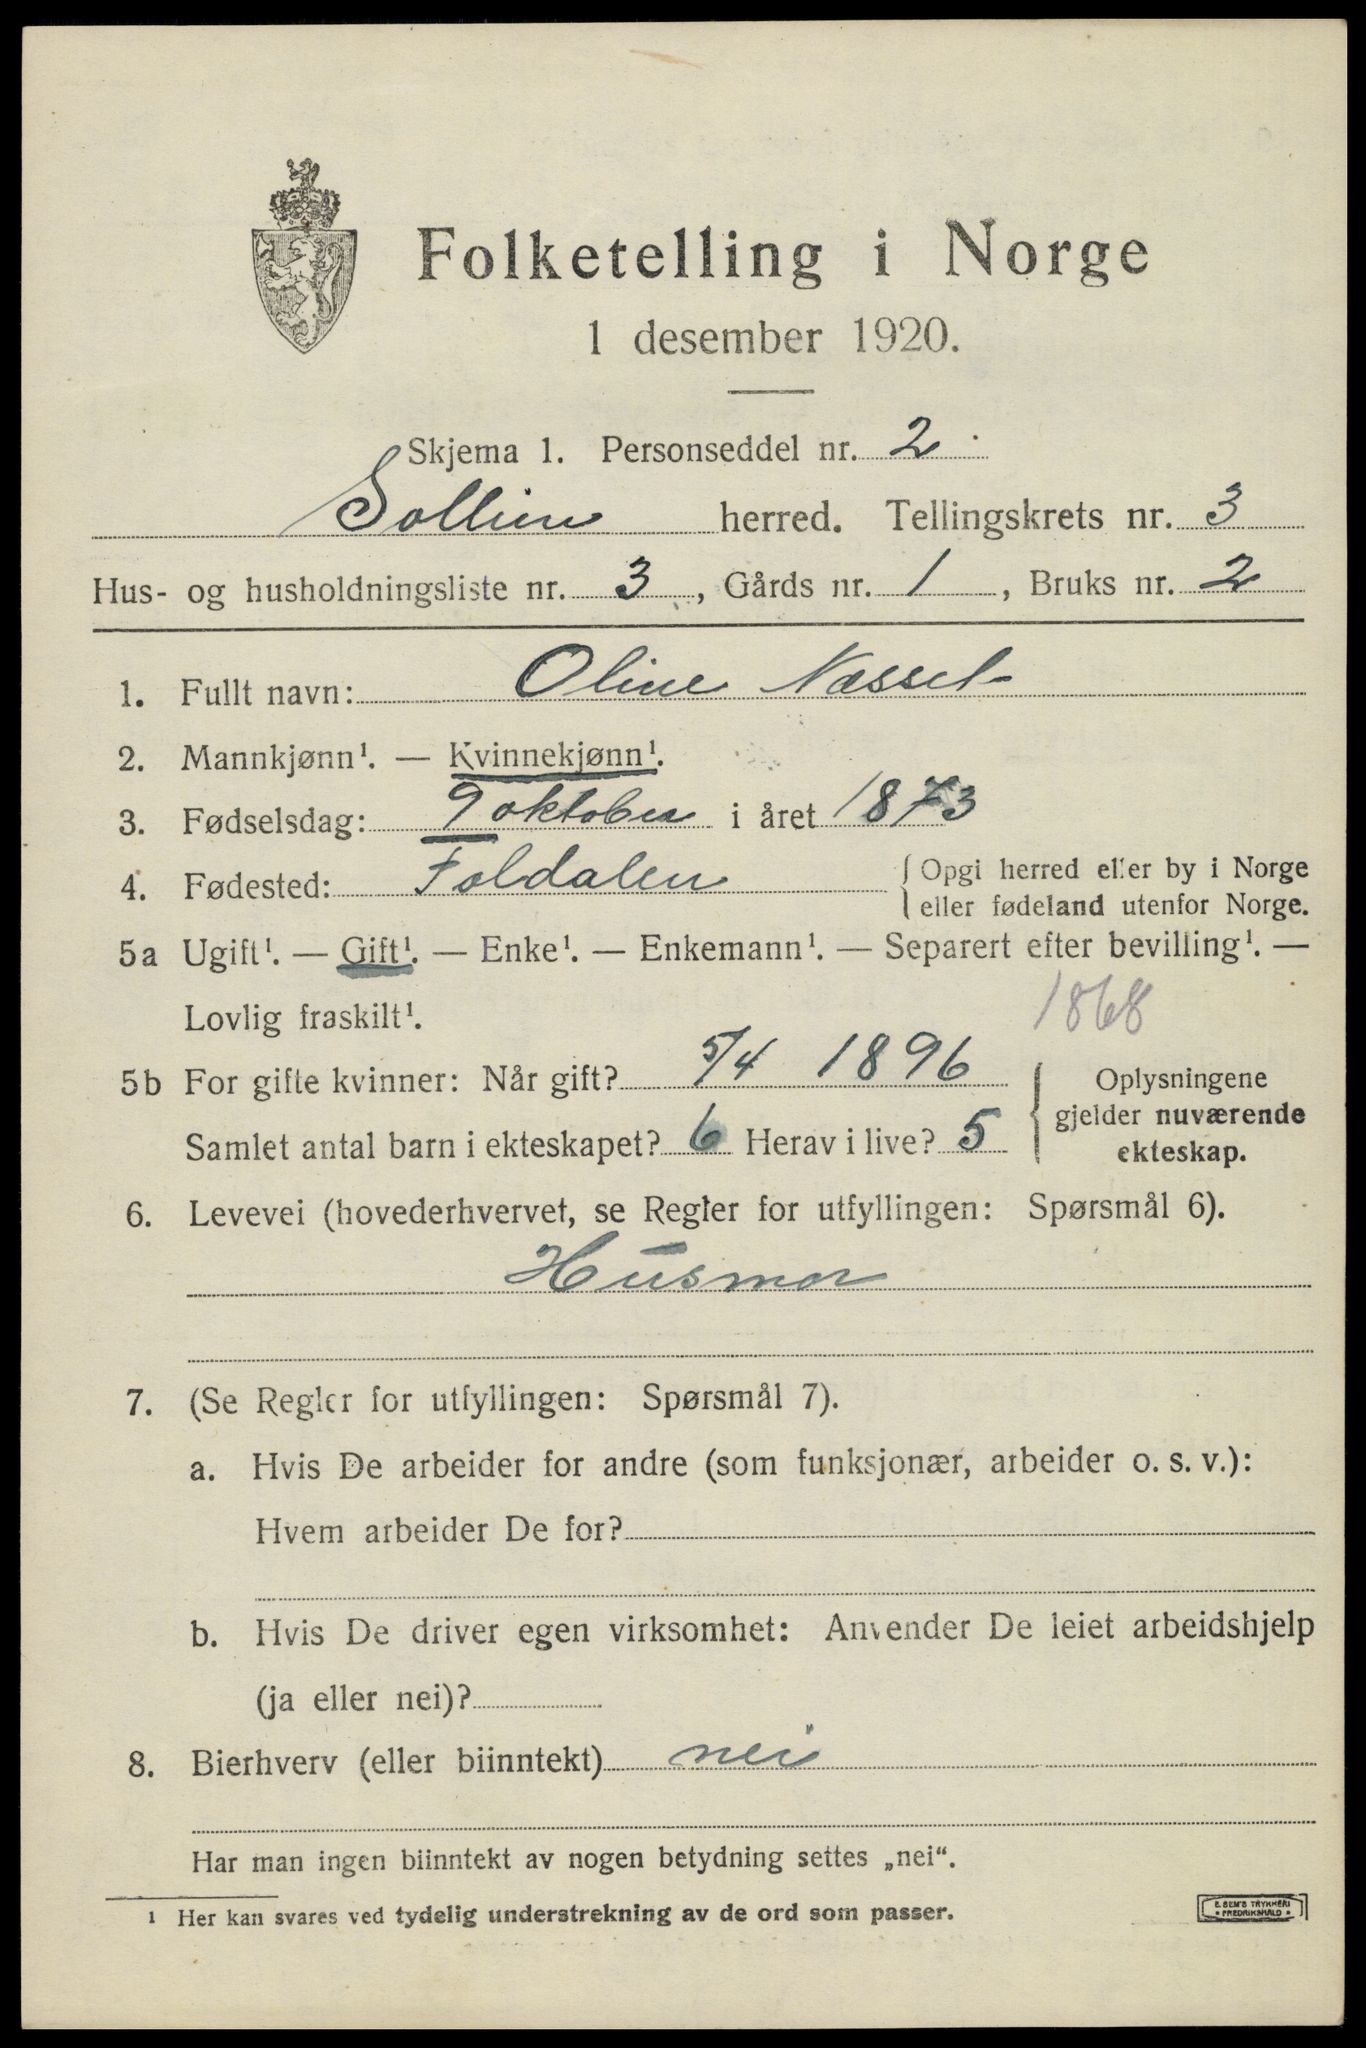 Folketelling i Norge
1 desember 1920.
Skjema 1. Personseddel nr. 2
Sollien herred. Tellingskrets nr. 3
Hus- og husholdningsliste nr. 3, Gårds nr. 1, Bruks nr. 2
1. Fullt navn: Oline Næsset
2. Mannkjønn¹. — Kvinnekjønn¹.
3. Fødselsdag: 9 oktober i året 1873
4. Fødested: Foldalen { Opgi herred eller by i Norge
eller fødeland utenfor Norge.
5a Ugift¹. — Gift¹. — Enke¹. — Enkemann¹. — Separert efter bevilling¹. —
Lovlig fraskilt¹. 1868
5b For gifte kvinner: Når gift? 5/4 1896
Samlet antal barn i ekteskapet? 6 Herav i live? 5
Oplysningene
gjelder nuværende
ekteskap.
6. Levevei (hovederhvervet, se Regler for utfyllingen: Spørsmål 6).
Husmor
7. (Se Regler for utfyllingen: Spørsmål 7).
a. Hvis De arbeider for andre (som funksjonær, arbeider o. s. v.):
Hvem arbeider De for?
b. Hvis De driver egen virksomhet: Anvender De leiet arbeidshjelp
(ja eller nei)?
8. Bierhverv (eller biinntekt) nei
Har man ingen biinntekt av nogen betydning settes „nei“.
¹ Her kan svares ved tydelig understrekning av de ord som passer.
E. SEM'S TRYKKERI
• FREDRIKSHALD •